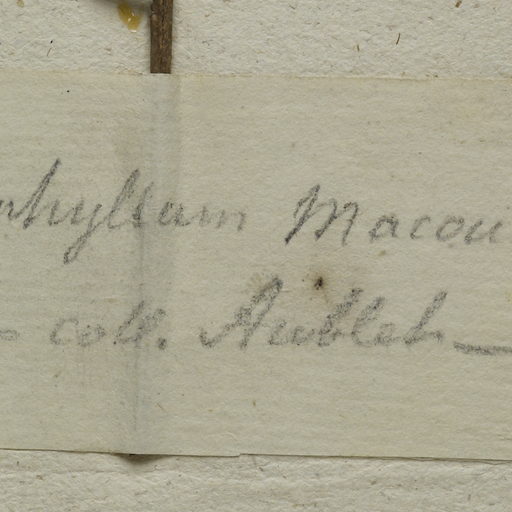 phyllum Macou
- coll. Aublet —